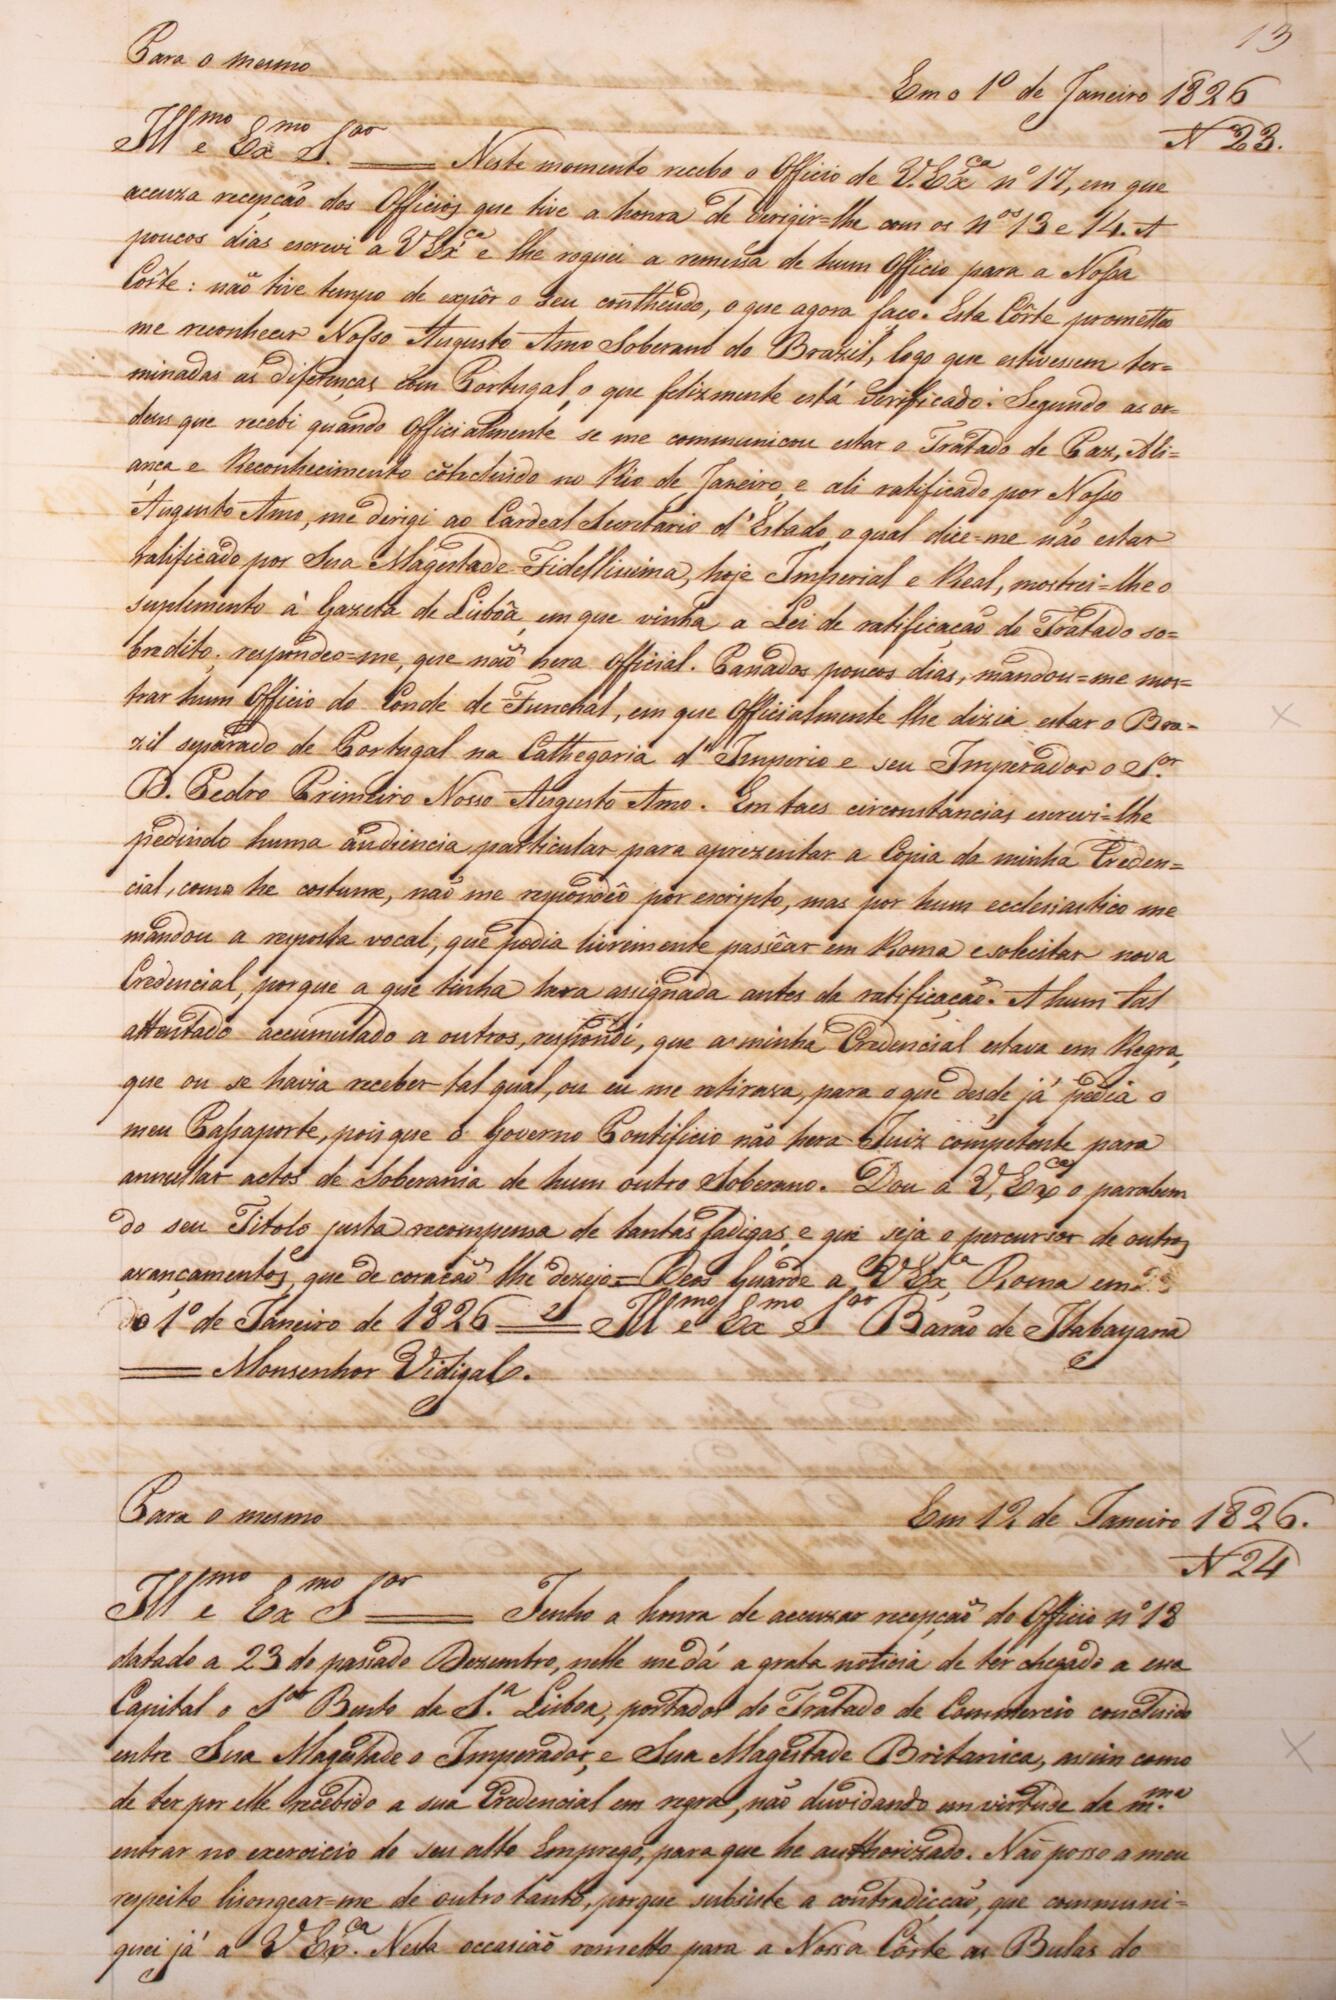 13
Para o mesmo
Em o 1º de Janeiro 1826
N 23.
Illmo e Exmo Sor Neste momento recebo o Officio de V. Exca nº 17, em que
accuza recepção dos Officios que tive a honra de derigir=lhe com os nos 13 e 14. A
poucos dias escrevi a V Exca e lhe roguei a remessa de hum Officio para a Nossa
Côrte: não tive tempo de expôr o seu contheudo, o que agora faco. Esta Côrte prometteo
me reconhecer Nosso Augusto Amo Soberano do Brazil, logo que estivessem ter=
minadas as diferenças com Portugal, o que felizmente está verificado. Segundo as or=
dens que recebi quando Officialmente se me communicou estar o Tratado de Paz, Ali=
ança e Reconhecimento cõlcluido no Rio de Janeiro, e ali ratificado por Nosso
Augusto Amo, me derigi ao Cardeal Secretario d'Estado, o qual dice-me não estar
ratificado por Sua Magestade Fidellissima, hoje Imperial e Real, mostrei=lhe o
suplemento á Gazeta de Lisbôa, em que vinha a Lei de ratificação do Tratado so=
bredito; respondeo=me, que não hera Official. Passados poucos dias, mandou=me mos=
trar hum Officio do Conde de Funchal, em que Officialmente lhe dizia estar o Bra=
zil separado de Portugal na Cathegoria d'Imperio e seu Imperador o Sr.
D. Pedro Primeiro Nosso Augusto Amo. Em taes circonstancias escrevi=lhe
pedindo huma audiencia particular para aprezentar a Copia da minha Creden=
cial, como he costume, não me respondêo por escripto, mas por hum ecclesiastico me
mandou a resposta vocal, que podia livrimente passêar em Roma e solecitar nova
Credencial, porque a que tinha hera assignada antes da ratificação. A hum tal
attentado accumulado a outros, respondi, que a minha Credencial estava em Regra,
que ou se havia receber tal qual, ou eu me retirava, para o que desde já pedia o
meu Passaporte, pois que o Governo Pontificio não hera Juiz competente para
annullar actos de Soberania de hum outro Soberano. Dou a V. Exca o parabem
do seu Titolo justa recompensa de tantas fadigas, e que seja o percursor de outros
avançamentos, que de coração lhe dezejo = Deos Guarde a V Exca Roma em
o 1º de Janeiro de 1826 = Illmo e Exmo Sor Barão de Itabayana
= Monsenhor Vidigal.
Para o mesmo
Em 12 de Janeiro 1826.
N 24
Illmo e Exmo Sor Tenho a honra de accuzar recepção do Officio nº 18
datado a 23 do passado Dezembro, nelle me dá a grata noticia de ter chegado a essa
Capital o Sor Bento da Sa. Lisboa, portador do Tratado de Commercio concluido
entre Sua Magestade o Imperador, e Sua Magestade Britanica, assim como
de ter por elle recebido a sua Credencial em regra, não duvidando em virtude da mma.
entrar no exercicio do seu alto Emprego, para que he authorizado. Não posso a meu
respeito lisongear=me de outro tanto, porque subsiste a contradicção, que communi=
quei já a V Exca. Nesta occasião remetto para a Nossa Côrte as Bulas do